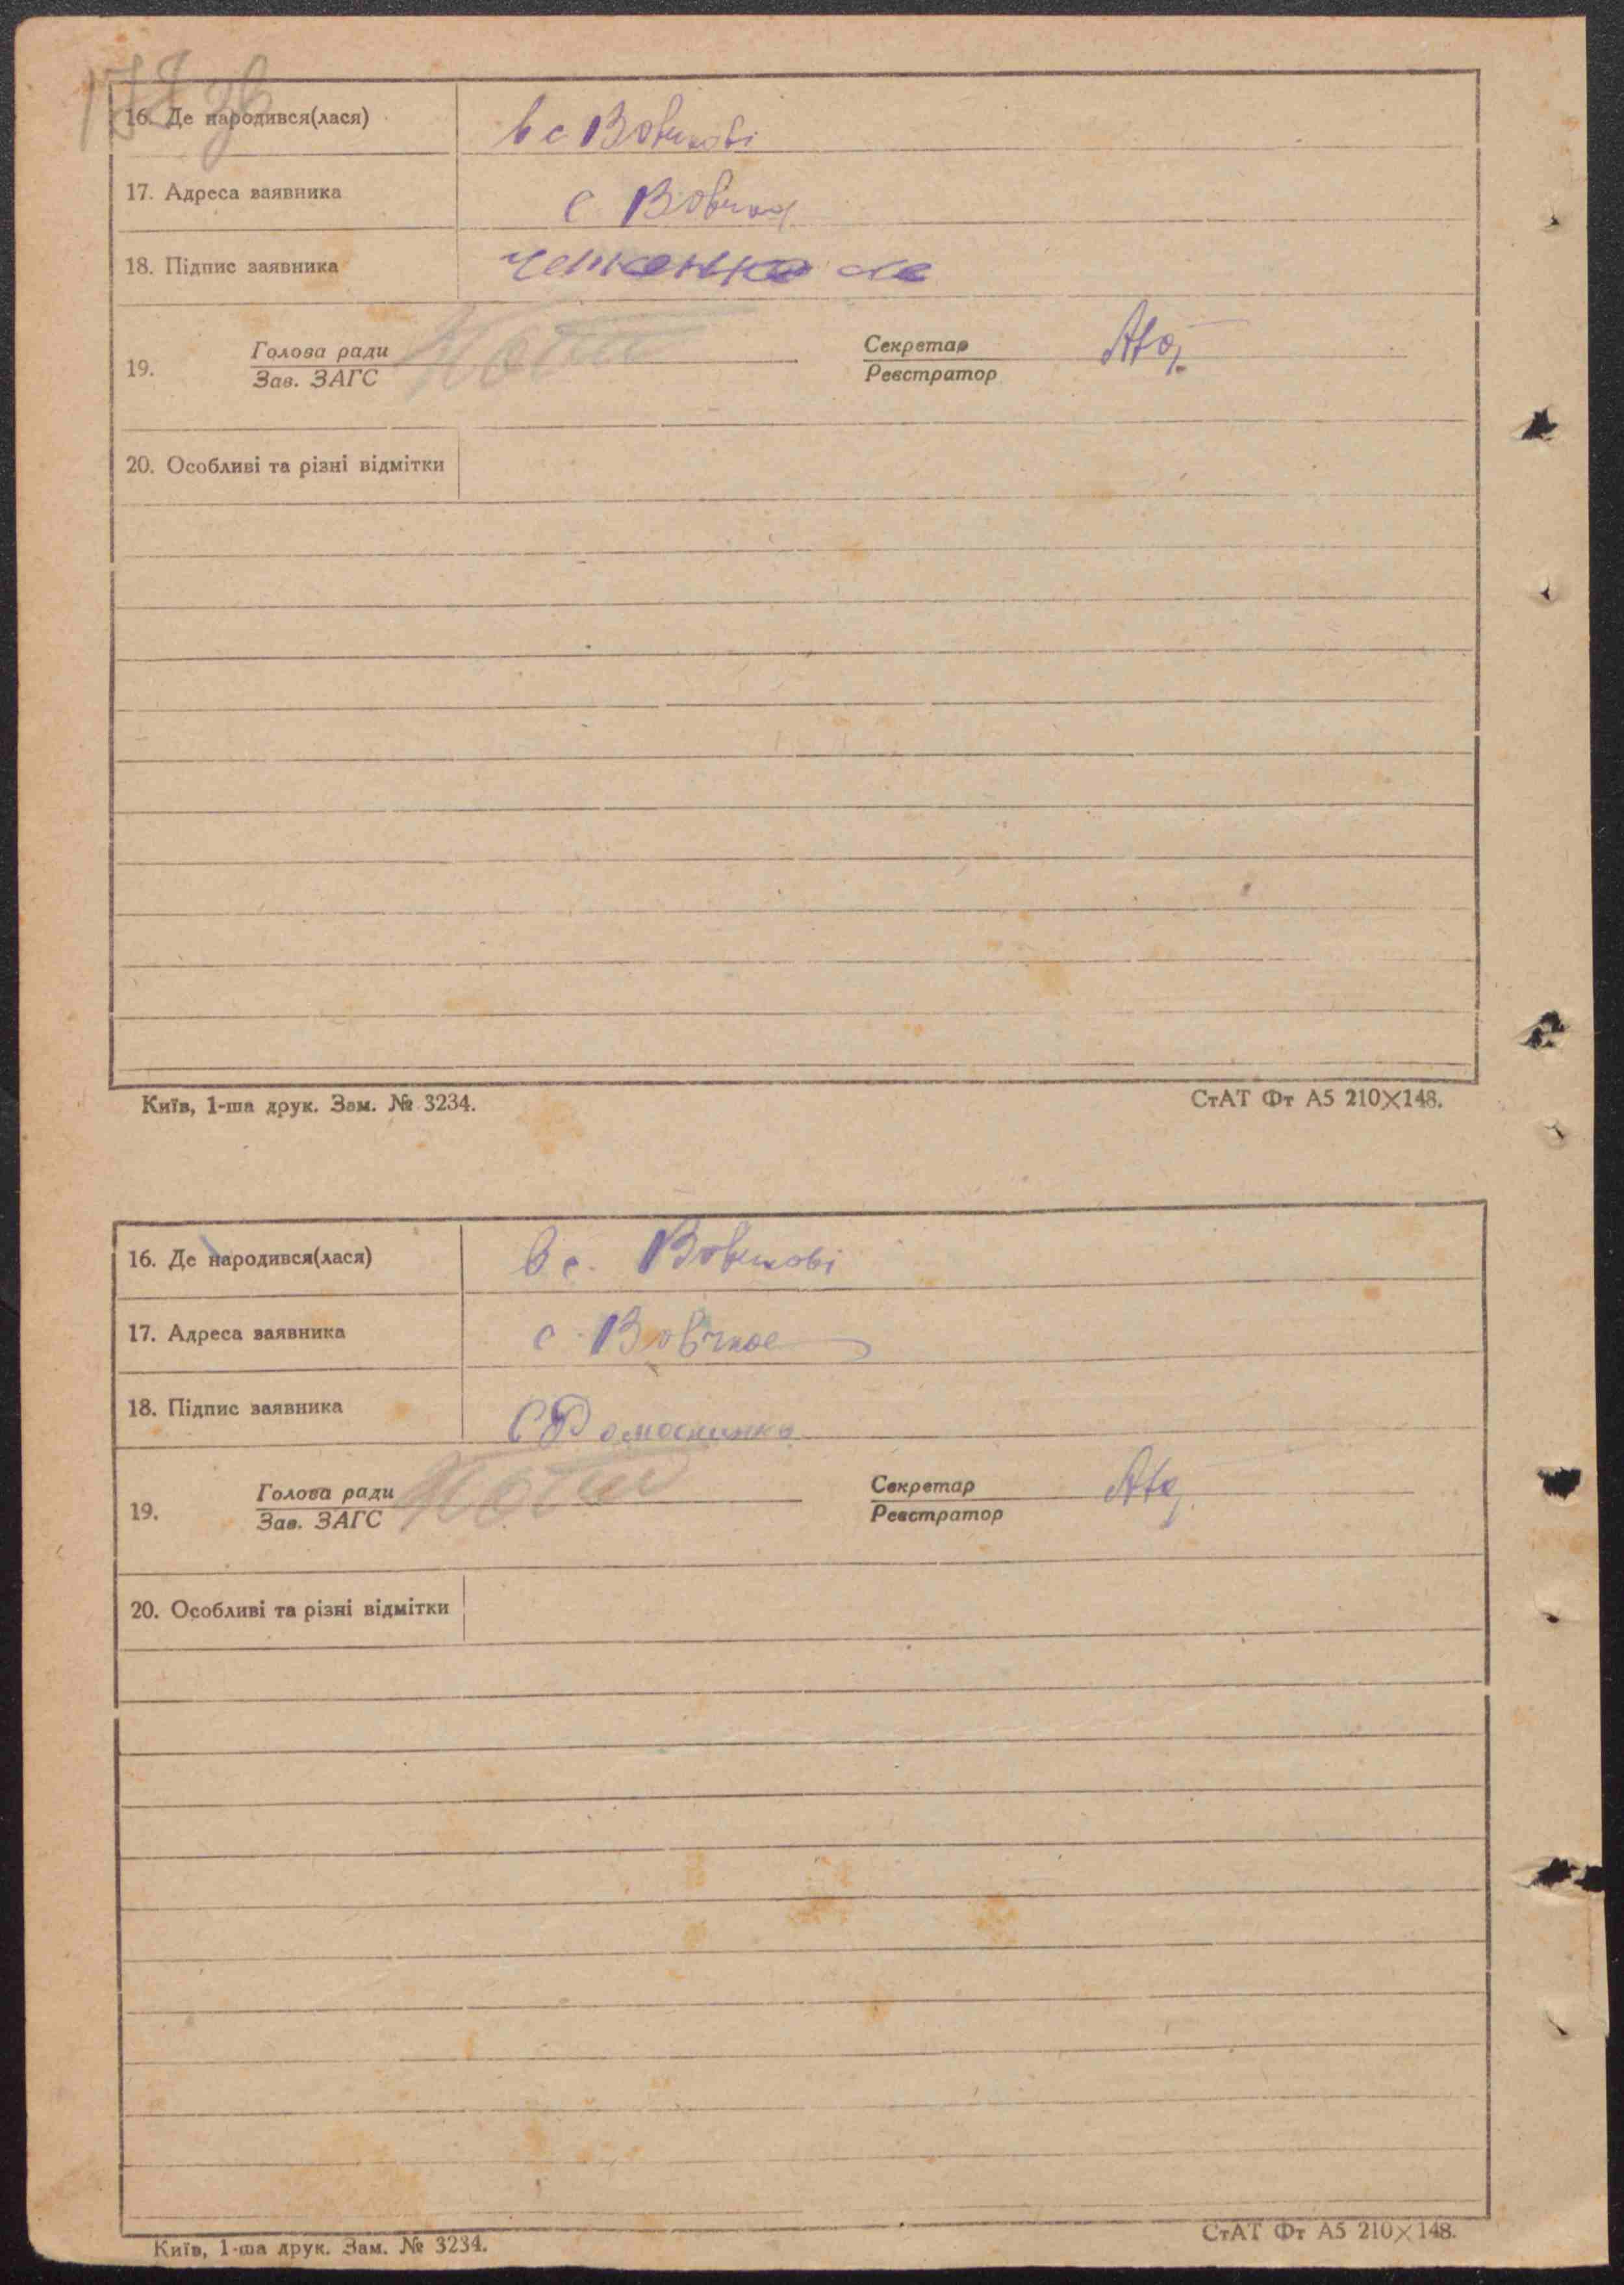 178 зв
16. Де народився(лася) в с Вовчкові
17. Адреса заявника с. Вовчок
18. Підпис заявника
19. Голова ради Секретар
Зав. ЗАГС Реєстратор
20. Особливі та різні відмітки
Київ, 1-ша друк. Зам. № 3234. СтАТ Фт А5 210×148.
16. Де народився(лася) в с. Вовчкові
17. Адреса заявника с. Вовчков
18. Підпис заявника
19. Голова ради Секретар
Зав. ЗАГС Реєстратор
20. Особливі та різні відмітки
Київ, 1-ша друк. Зам. № 3234. СтАТ Фт А5 210×148.